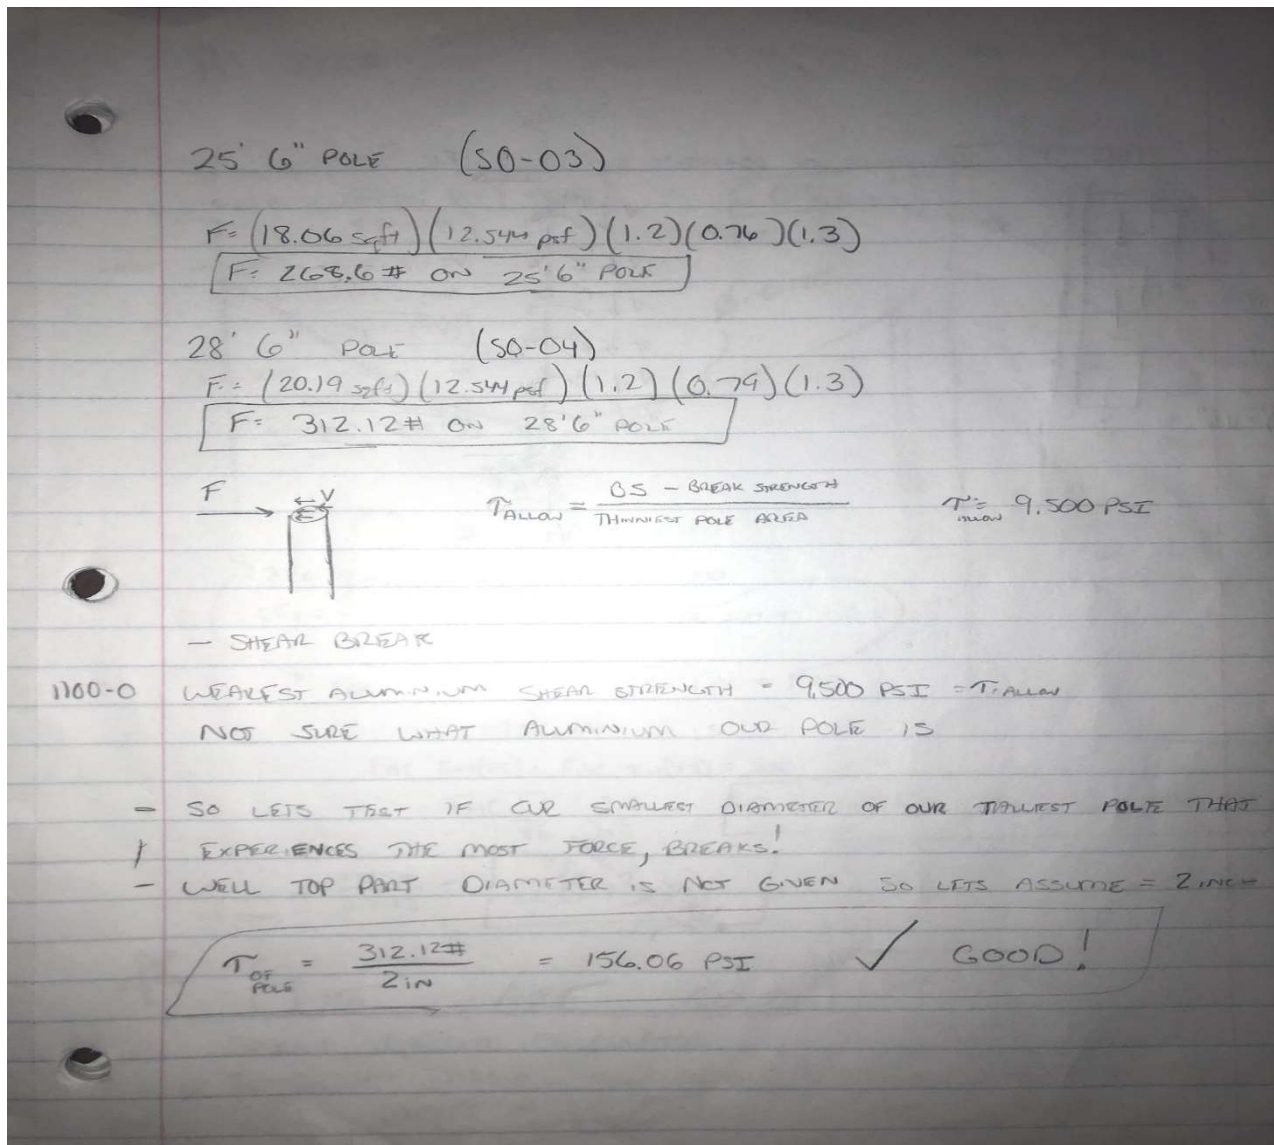 25' 6" POLE (SO-03)
F= (18.06 sqft)(12.544 psf)(1.2)(0.76)(1.3)
F= 268.6 # ON 25'6" POLE
28' 6" POLE (SO-04)
F= (20.19 sqft)(12.544 psf)(1.2)(0.79)(1.3)
F= 312.12# ON 28'6" POLE
F V
τALLOW = BS - BREAK STRENGTH / THINNIEST POLE AREA τALLOW = 9,500 PSI
- SHEAR BREAK
1100-0 WEAKEST ALUMINIUM SHEAR STRENGTH = 9,500 PSI = τALLOW
NOT SURE WHAT ALUMINIUM OUR POLE IS
- SO LETS TEST IF OUR SMALLEST DIAMETER OF OUR TALLIEST POLE THAT
EXPERIENCES THE MOST FORCE, BREAKS!
- WELL TOP PART DIAMETER IS NOT GIVEN SO LETS ASSUME = 2 INCH
τOF POLE = 312.12# / 2 IN = 156.06 PSI ✓ GOOD!